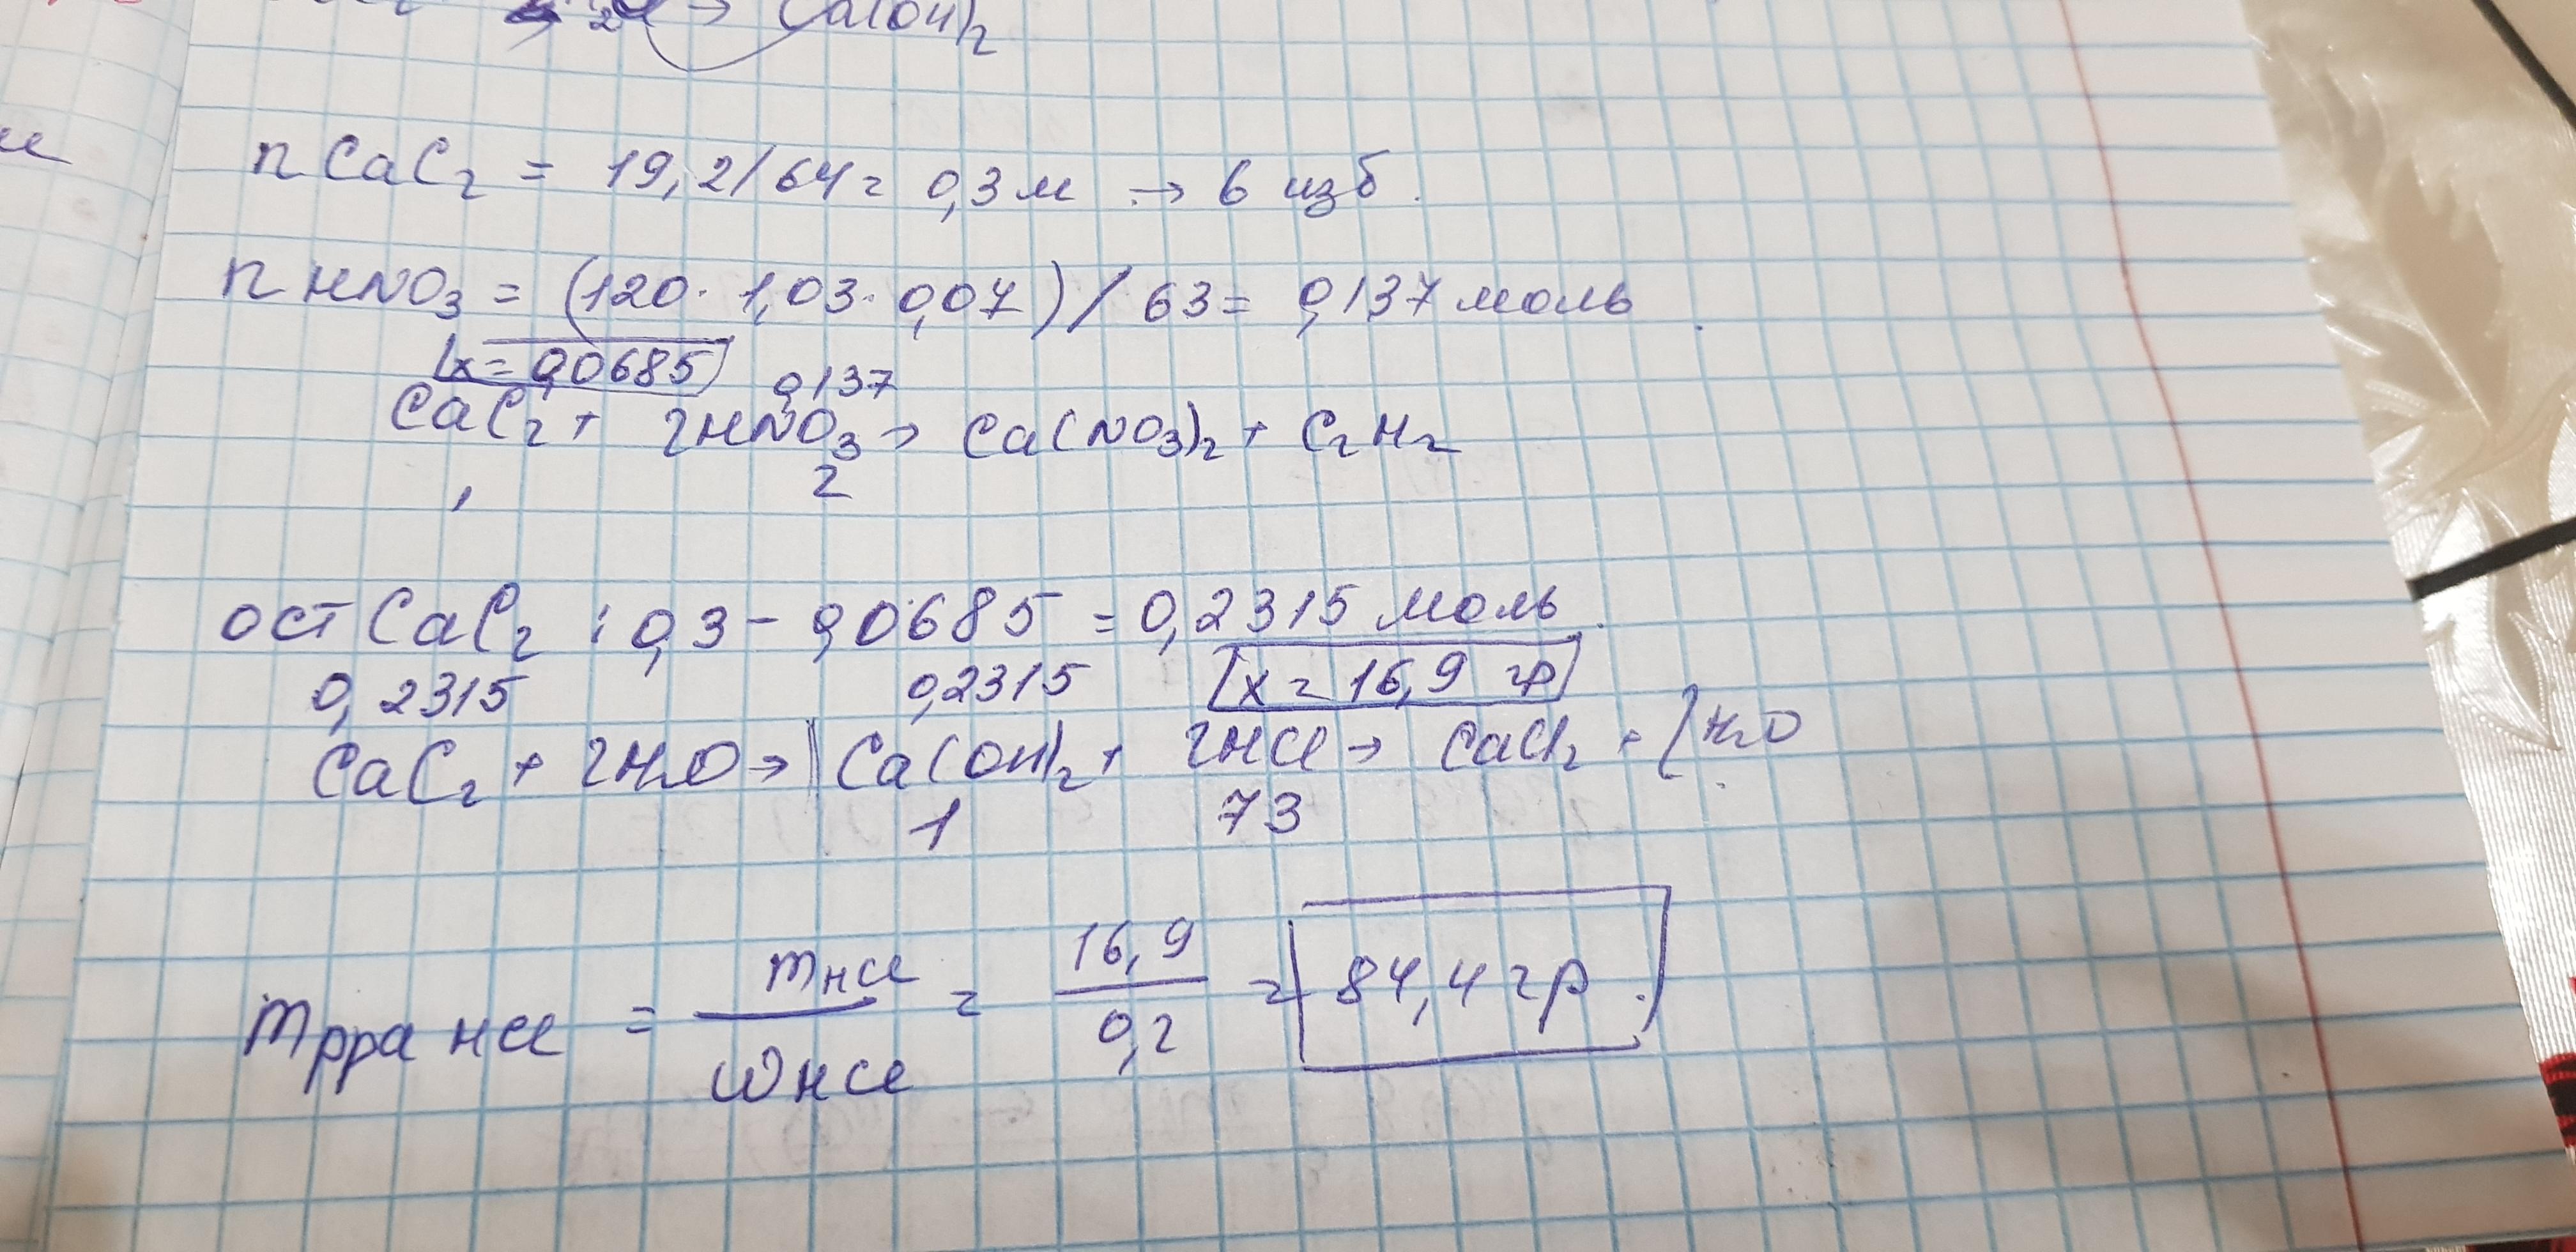 Ca(OH)₂
n CaC₂ = 19,2/64 = 0,3 м → в изб.
n HNO₃ = (120 · 1,03 · 0,07) / 63 = 0,137 моль
x = 0,0685
0,137
CaC₂ + 2HNO₃ → Ca(NO₃)₂ + C₂H₂
1 2
ост CaC₂ : 0,3 - 0,0685 = 0,2315 моль.
0,2315 0,2315 x = 16,9 гр
CaC₂ + 2H₂O → Ca(OH)₂ + 2HCl → CaCl₂ + 2H₂O
1 73
m рра HCl = m HCl / ω HCl = 16,9 / 0,2 = 84,4 гр.